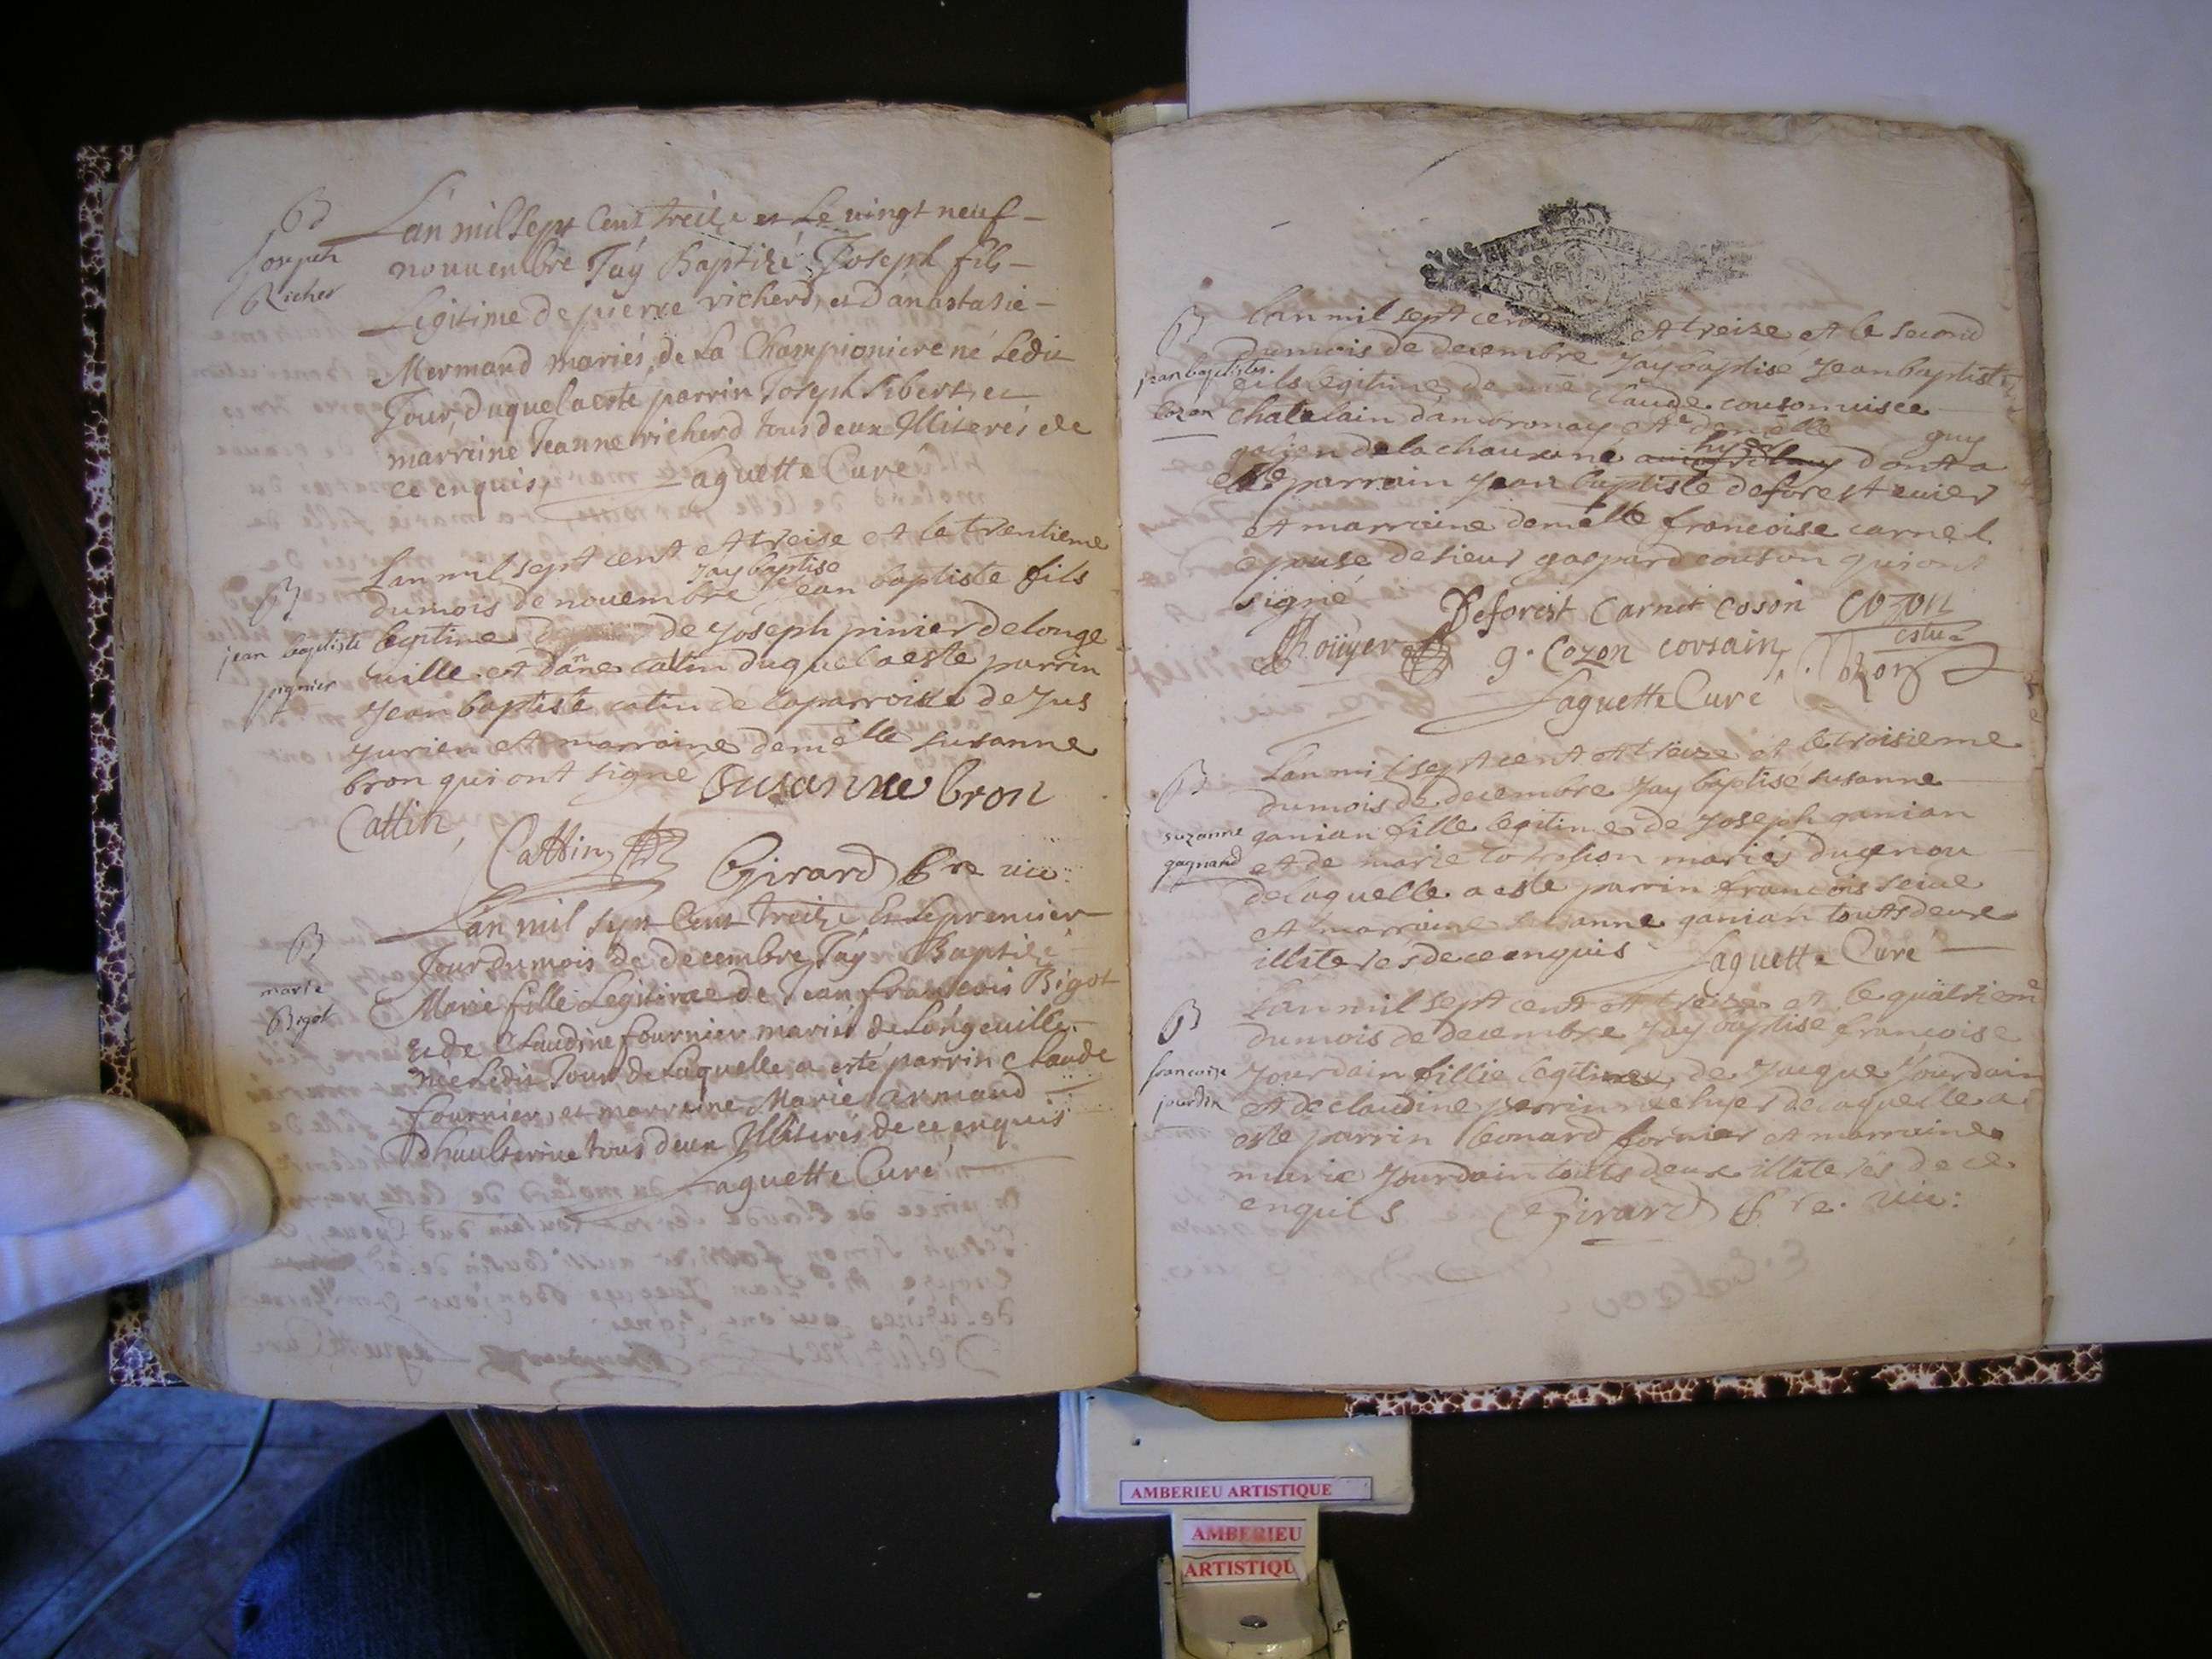 B
Joseph
Richer
L'an mil sept Cent treize et Le vingt neuf
nouuembre J'ay Baptizé Joseph fils
Legitime de pierre richerd, et d'anastasie
Mermand mariés, de La Championiere né Ledit
Jour, duquel a esté parrin Joseph Sibert, et
marreine Jeanne richerd tous deux Illiterés de
ce enquis, Laguette Curé
B
jean baptiste
pignier
Lan mil sept cent et treise et le trentieme
jay baptise
du mois de nouembre Jean baptiste fils
legitime de Joseph pinier de longe
uille et danne catin duquel a este parrin
Jean baptiste catin de la parroisse de Jus
Jurieu et marraine demelle susanne
bron qui ont signe Susanne bron
Cattin, Cattin Girard vic:
B
marie
Bigot
L'an mil sept Cent treize Et Le premier
Jour du mois de decembre J'ay Baptizé
Marie fille Legitime de Jean francois Bigot
et de Claudine fournier mariés de Longeuille
née Ledit Jour de Laquelle a esté parrin Claude
fournier, et marreine Marie armand
D'haulterive tous deux Illiterés de ce enquis
Laguette Curé
B
jean baptiste
cozon
Lan mil sept cent et treize et le second
du mois de decembre Jay baptisé Jean baptiste
fils legitime de claude couson
chatelain dambronay et demelle guy
de la chaux né hyer dont a
esté parrain Jean baptiste deforest
et marraine demelle francoise carnet
epouse de sieur gaspard couson qui ont
signé Deforest Carnet Coson Cozon
Roüyer g. Cozon corsain,
Laguette Curé
B
suzanne
gagnand
Lan mil sept cent et treize et le troisieme
du mois de decembre Jay baptisé susanne
ganian fille legitime de Joseph ganian
et de marie mariés
de laquelle a este parrin francois
et marraine susanne ganian touts deux
illiterés de ce enquis Laguette Curé
B
francoise
jourdin
Lan mil sept cent et treize et le quatrieme
du mois de decembre Jay baptisé francoise
Jourdain fillie legitime de Jacque Jourdain
et de claudine perrin nee hyer de laquelle a
este parrin leonard fornier et marraine
marie Jourdain touts deux illiterés de ce
enquis Girard vic:
AMBERIEU ARTISTIQUE
AMBERIEU
ARTISTIQU